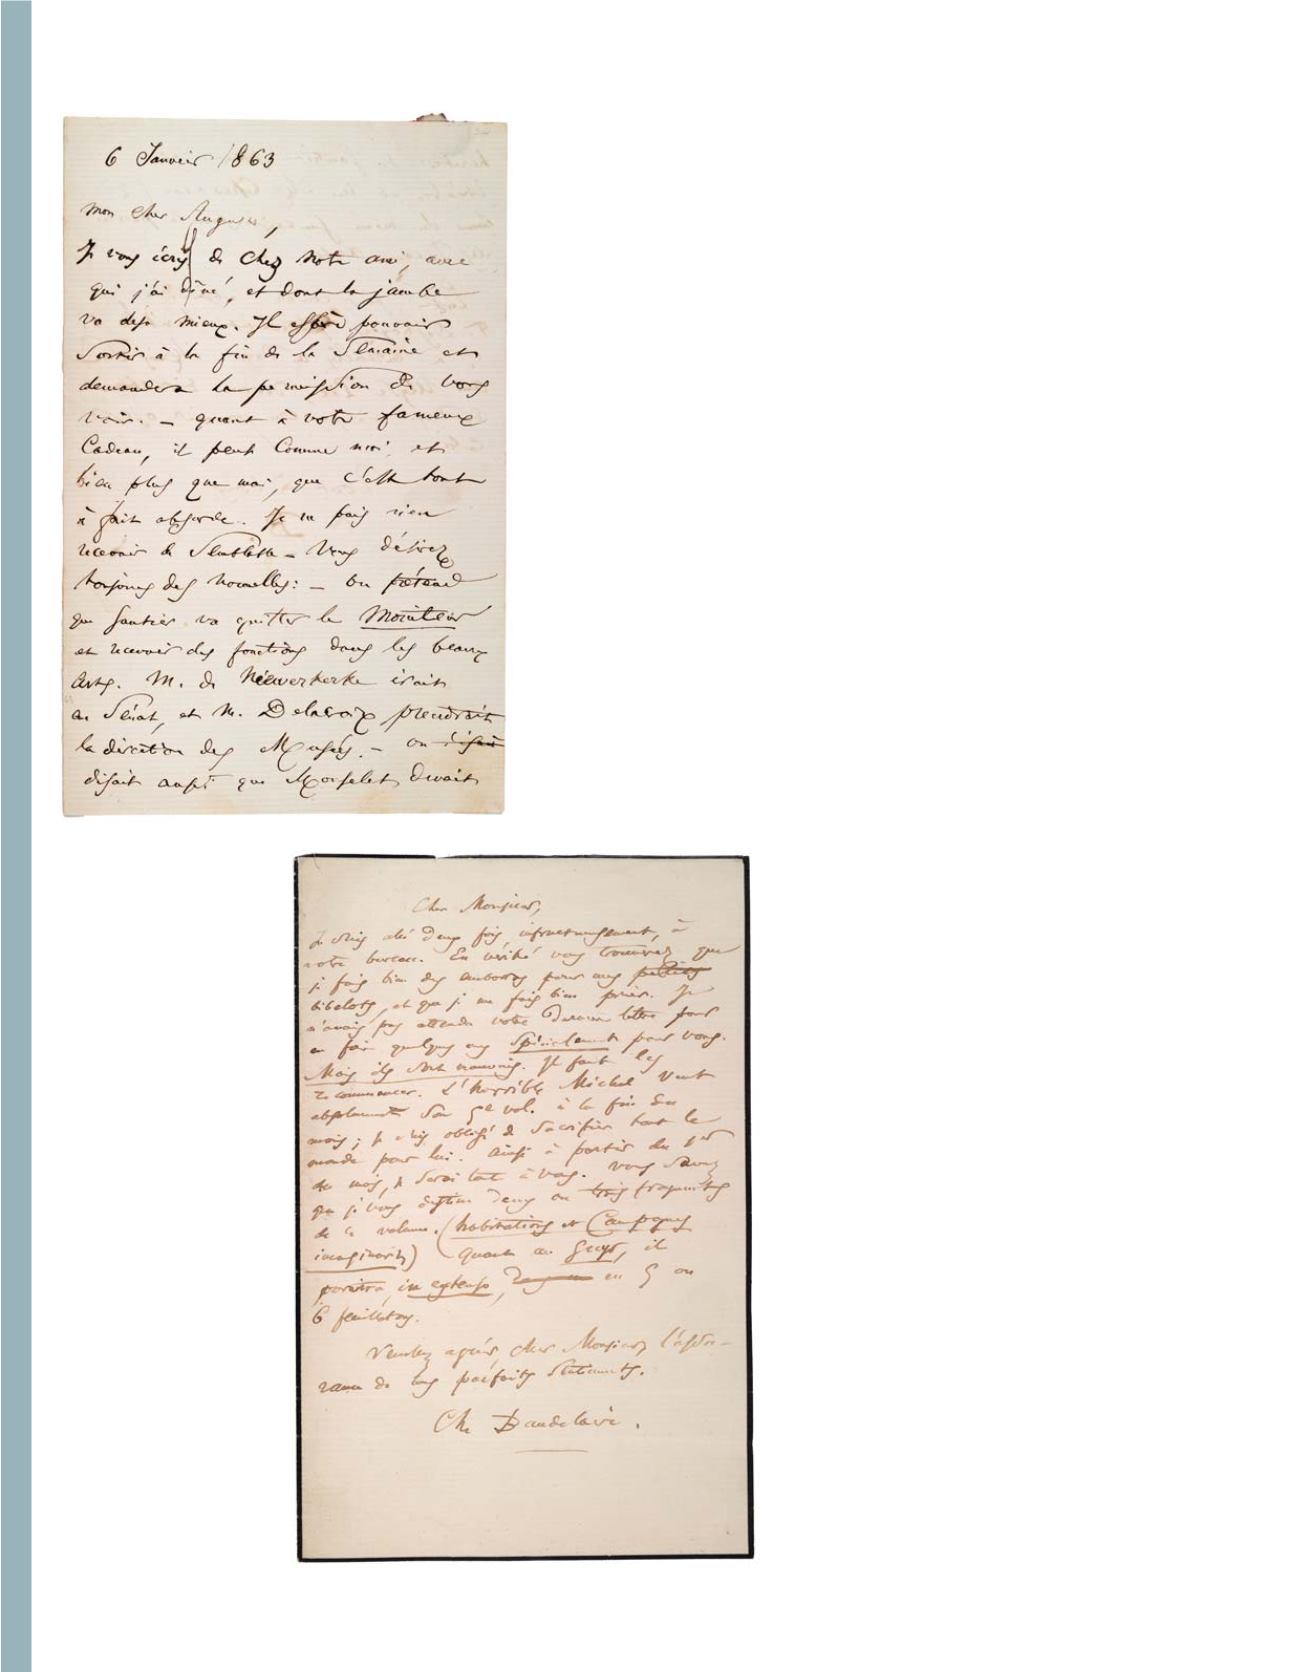 6 Janvier 1863
mon cher Auguste,
Je vous écris de chez notre ami, avec
qui j'ai dîné, et dont la jambe
va déjà mieux. Il espère pouvoir
sortir à la fin de la semaine et
demandera la permission de vous
voir. — quant à votre fameux
Cadeau, il pense comme moi, et
bien plus que moi, que c'est tout
à fait absurde. Je ne puis rien
recevoir de semblable — Vous désirez
toujours des nouvelles : — on prétend
que Gautier va quitter le Moniteur
et recevoir des fonctions dans les beaux
Arts. M. de Nieuwerkerke irait
au Sénat, et M. Delacroix prendrait
la direction des Musées. — on
disait aussi que Monselet devait
Cher Monsieur,
Je suis allé deux fois, infructueusement, à
votre bureau. En vérité vous trouverez que
je fais bien des embarras pour mes petites
bibelots, et que je me fais bien prier. Je
n'avais pas attendu votre dernière lettre pour
en faire quelques uns spécialement pour vous.
Mais ils sont mauvais. Il faut les
recommencer. L'horrible Michel veut
absolument son 5e vol. à la fin du
mois ; je suis obligé de sacrifier tout le
monde pour lui. Ainsi à partir du 1er
du mois, je serai tout à vous. Vous savez
que je vous destine deux ou trois fragments
de ce volume. (habitations et Campagnes
imaginaires) quant au Guys, il
paraîtra in extenso, en 5 ou
6 feuilletons.
Veuillez agréer, cher Monsieur, l'assu-
rance de mes parfaits sentiments.
Ch. Baudelaire.